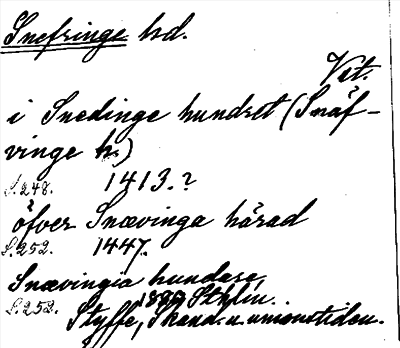 Snefringe hd.
Vst.
i Snedinge hundret (Snäf-
vinge h.)
S. 248. 1413.?
öfver Snævinga härad
S. 252. 1447.
Snævingia hundare,
S. 252. 1880 Sthlm.
Styffe, Skand. u. unionstiden.